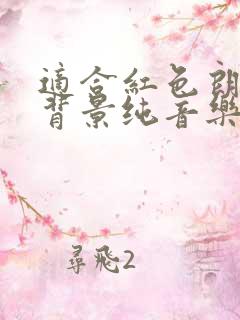 適合紅色朗
背景纯音樂
尋飛2